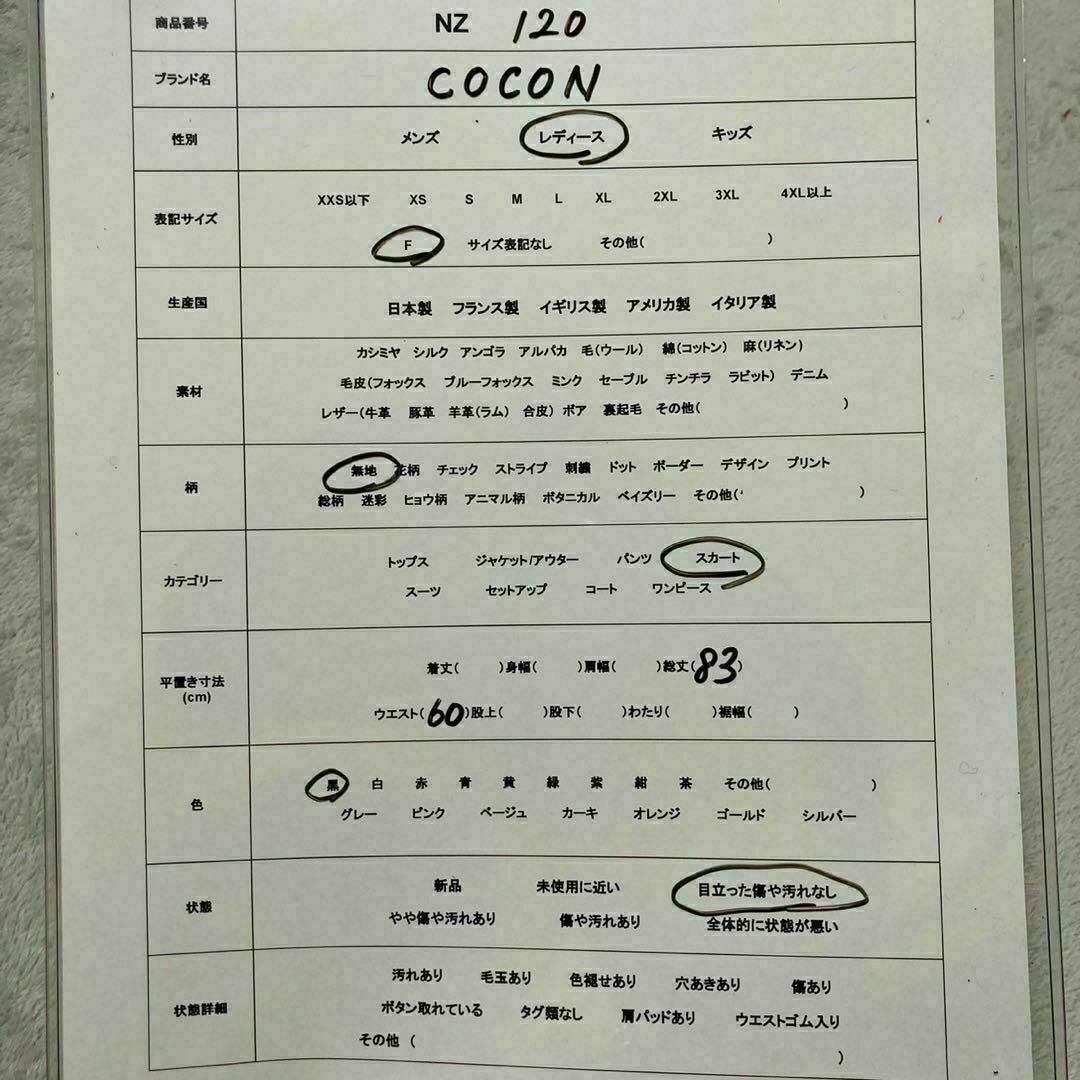 商品番号 NZ 120
ブランド名 COCON
性別 メンズ レディース キッズ
XXS以下 XS S M L XL 2XL 3XL 4XL以上
表記サイズ
F サイズ表記なし その他( )
生産国 日本製 フランス製 イギリス製 アメリカ製 イタリア製
カシミヤ シルク アンゴラ アルパカ 毛(ウール) 綿(コットン) 麻(リネン)
素材 毛皮(フォックス ブルーフォックス ミンク セーブル チンチラ ラビット) デニム
レザー(牛革 豚革 羊革(ラム) 合皮) ボア 裏起毛 その他( )
無地 花柄 チェック ストライプ 刺繍 ドット ボーダー デザイン プリント
柄
総柄 迷彩 ヒョウ柄 アニマル柄 ボタニカル ペイズリー その他( )
トップス ジャケット/アウター パンツ スカート
カテゴリー
スーツ セットアップ コート ワンピース
着丈( )身幅( )肩幅( )総丈(83)
平置き寸法
(cm)
ウエスト(60)股上( )股下( )わたり( )裾幅( )
黒 白 赤 青 黄 緑 紫 紺 茶 その他( )
色
グレー ピンク ベージュ カーキ オレンジ ゴールド シルバー
新品 未使用に近い 目立った傷や汚れなし
状態
やや傷や汚れあり 傷や汚れあり 全体的に状態が悪い
汚れあり 毛玉あり 色褪せあり 穴あきあり 傷あり
状態詳細 ボタン取れている タグ類なし 肩パッドあり ウエストゴム入り
その他 ( )